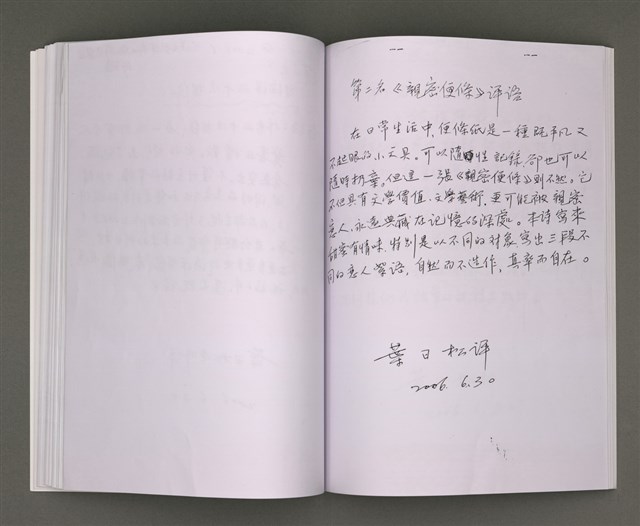 第二名《親密便條》評語
在日常生活中，便條紙是一種既平凡又
不起眼的小工具。可以隨時性記錄，卻也可以
隨時扔棄，但這一張《親密便條》則不然。它
不但具有文學價值、文學藝術，更可能被親密
戀人，永遠典藏在記憶的深處。本詩寫來
甜蜜有情味，特別是以不同的对象寫出三段不
同的戀人絮語，自然而不造作，真率而自在。
葉日松評
2006.6.30